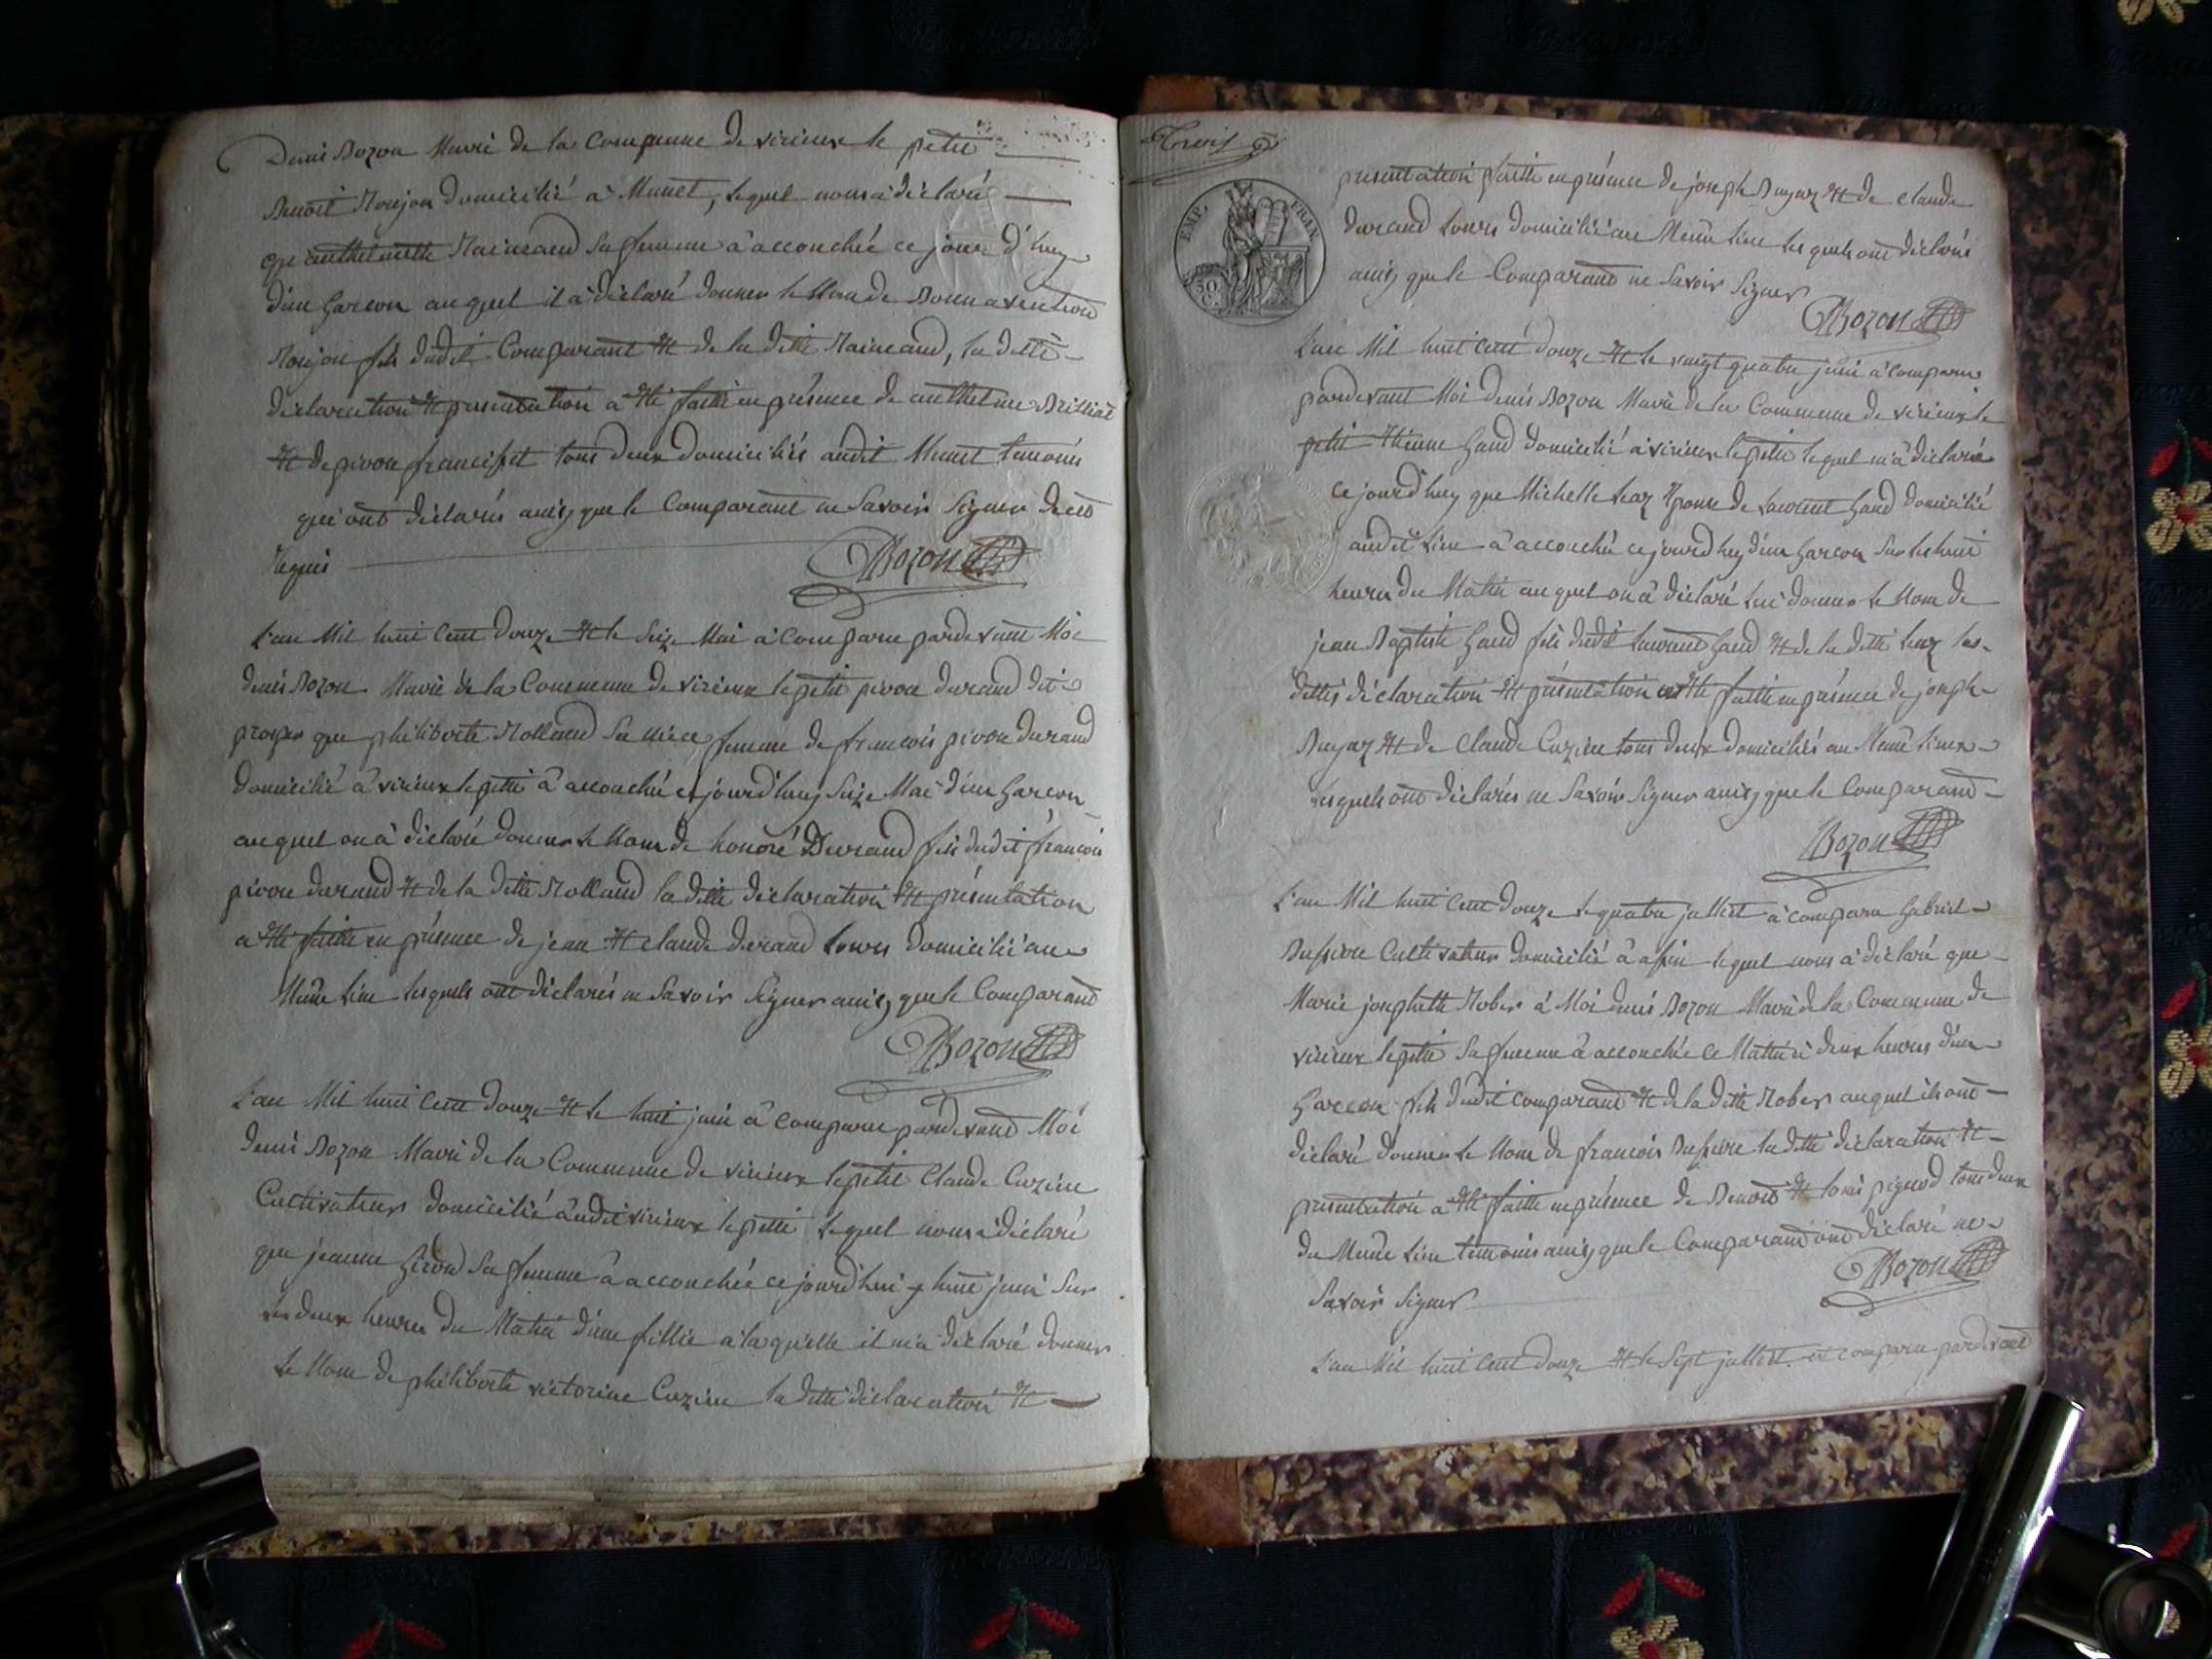 Denis Bozon Maire de la Commune de virieux le petit
Benoit Roujon domicilié à Munet, lequel nous à déclaré
que anthelmette sa femme à accouchée ce jour d'huy
d'un Garcon auquel il à déclaré donner le Nom de Bonnaventure
Roujon fils dudit Comparant et de la ditte la ditte
déclaration et présentation a été faitte en présence de anthelme Brilliat
et de pivon tous deux domiciliés audit Munet temoins
qui ont déclarés ainsy que le Comparant ne Savoir Signer de ce
Requis
Bozon
L'an Mil huit Cent douze et le Seize Mai à Comparu pardevant Moi
denis Bozon Maire de la Commune de virieux le petit pivon durand dit
que philiberte Rolland Sa niéce femme de francois pivon durand
domicilié à virieux le petit à accouchée cejourd'huy Seize Mai d'un Garcon
auquel on à déclaré donner le Nom de honoré Durand fils dudit francois
pivon durand et de la ditte Rolland la ditte déclaration et présentation
a été faitte en présence de jean et claude durand Domicilié au
Même Lieu lesquels ont déclarés ne Savoir Signer ainsy que le Comparand
Bozon
L'an Mil huit Cent douze et le huit juin à Comparu pardevand Moi
denis Bozon Maire de la Commune de virieux le petit Claude Cuzin
Cultivateur domicilié audit virieux le petit Lequel nous à déclaré
que jeanne Girod Sa femme à accouchée cejourd'hui huit juin Sur
les deux heures du Matin d'une fillie à laquelle il m'a déclaré donner
Le Nom de philiberte victorine Cuzin la ditte déclaration et
Trois
EMP. FRAN.
50 C.
présentation faitte en présence de joseph Bugaz et de claude
durand domicilié au Même Lieu lesquels ont déclarés
ainsy que le Comparand ne Savoir Signer
Bozon
L'an Mil huit Cent douze et le vingt quatre juin à Comparu
pardevant Moi denis Bozon Maire de la Commune de virieux le
petit étienne domicilié à virieux le petit lequel m'a déclaré
ce jourd'huy que Michelle épouse de Laurent domicilié
audit Lieu à accouchée ce jourd'huy d'un Garcon Sur les huit
heures du Matin auquel on à déclaré lui donner le Nom de
jean Baptiste fils dudit Laurent et de la ditte les
dittes déclaration et présentation été faitte en présence de joseph
Bugaz et de Claude Cuzin tous deux domiciliés au Même Lieu
lesquels ont déclarés ne Savoir Signer ainsy que le Comparand
Bozon
L'an Mil huit Cent douze le quatre jullet à comparu Gabriel
Cultivateur domicilié à lequel nous à déclaré que
Marie josephette à Moi denis Bozon Maire de la Commune de
virieux le petit Sa femme à accouchée ce Matin à deux heures d'un
Garcon fils dudit comparand et de la ditte auquel ils ont
déclaré donner le Nom de francois la ditte déclaration et
présentation a été faitte en présence de Benoit et Louis tous deux
du Même Lieu temoins ainsy que le Comparand ont déclaré ne
Savoir Signer
Bozon
L'an Mil huit Cent douze et le Sept jullet comparu pardevant